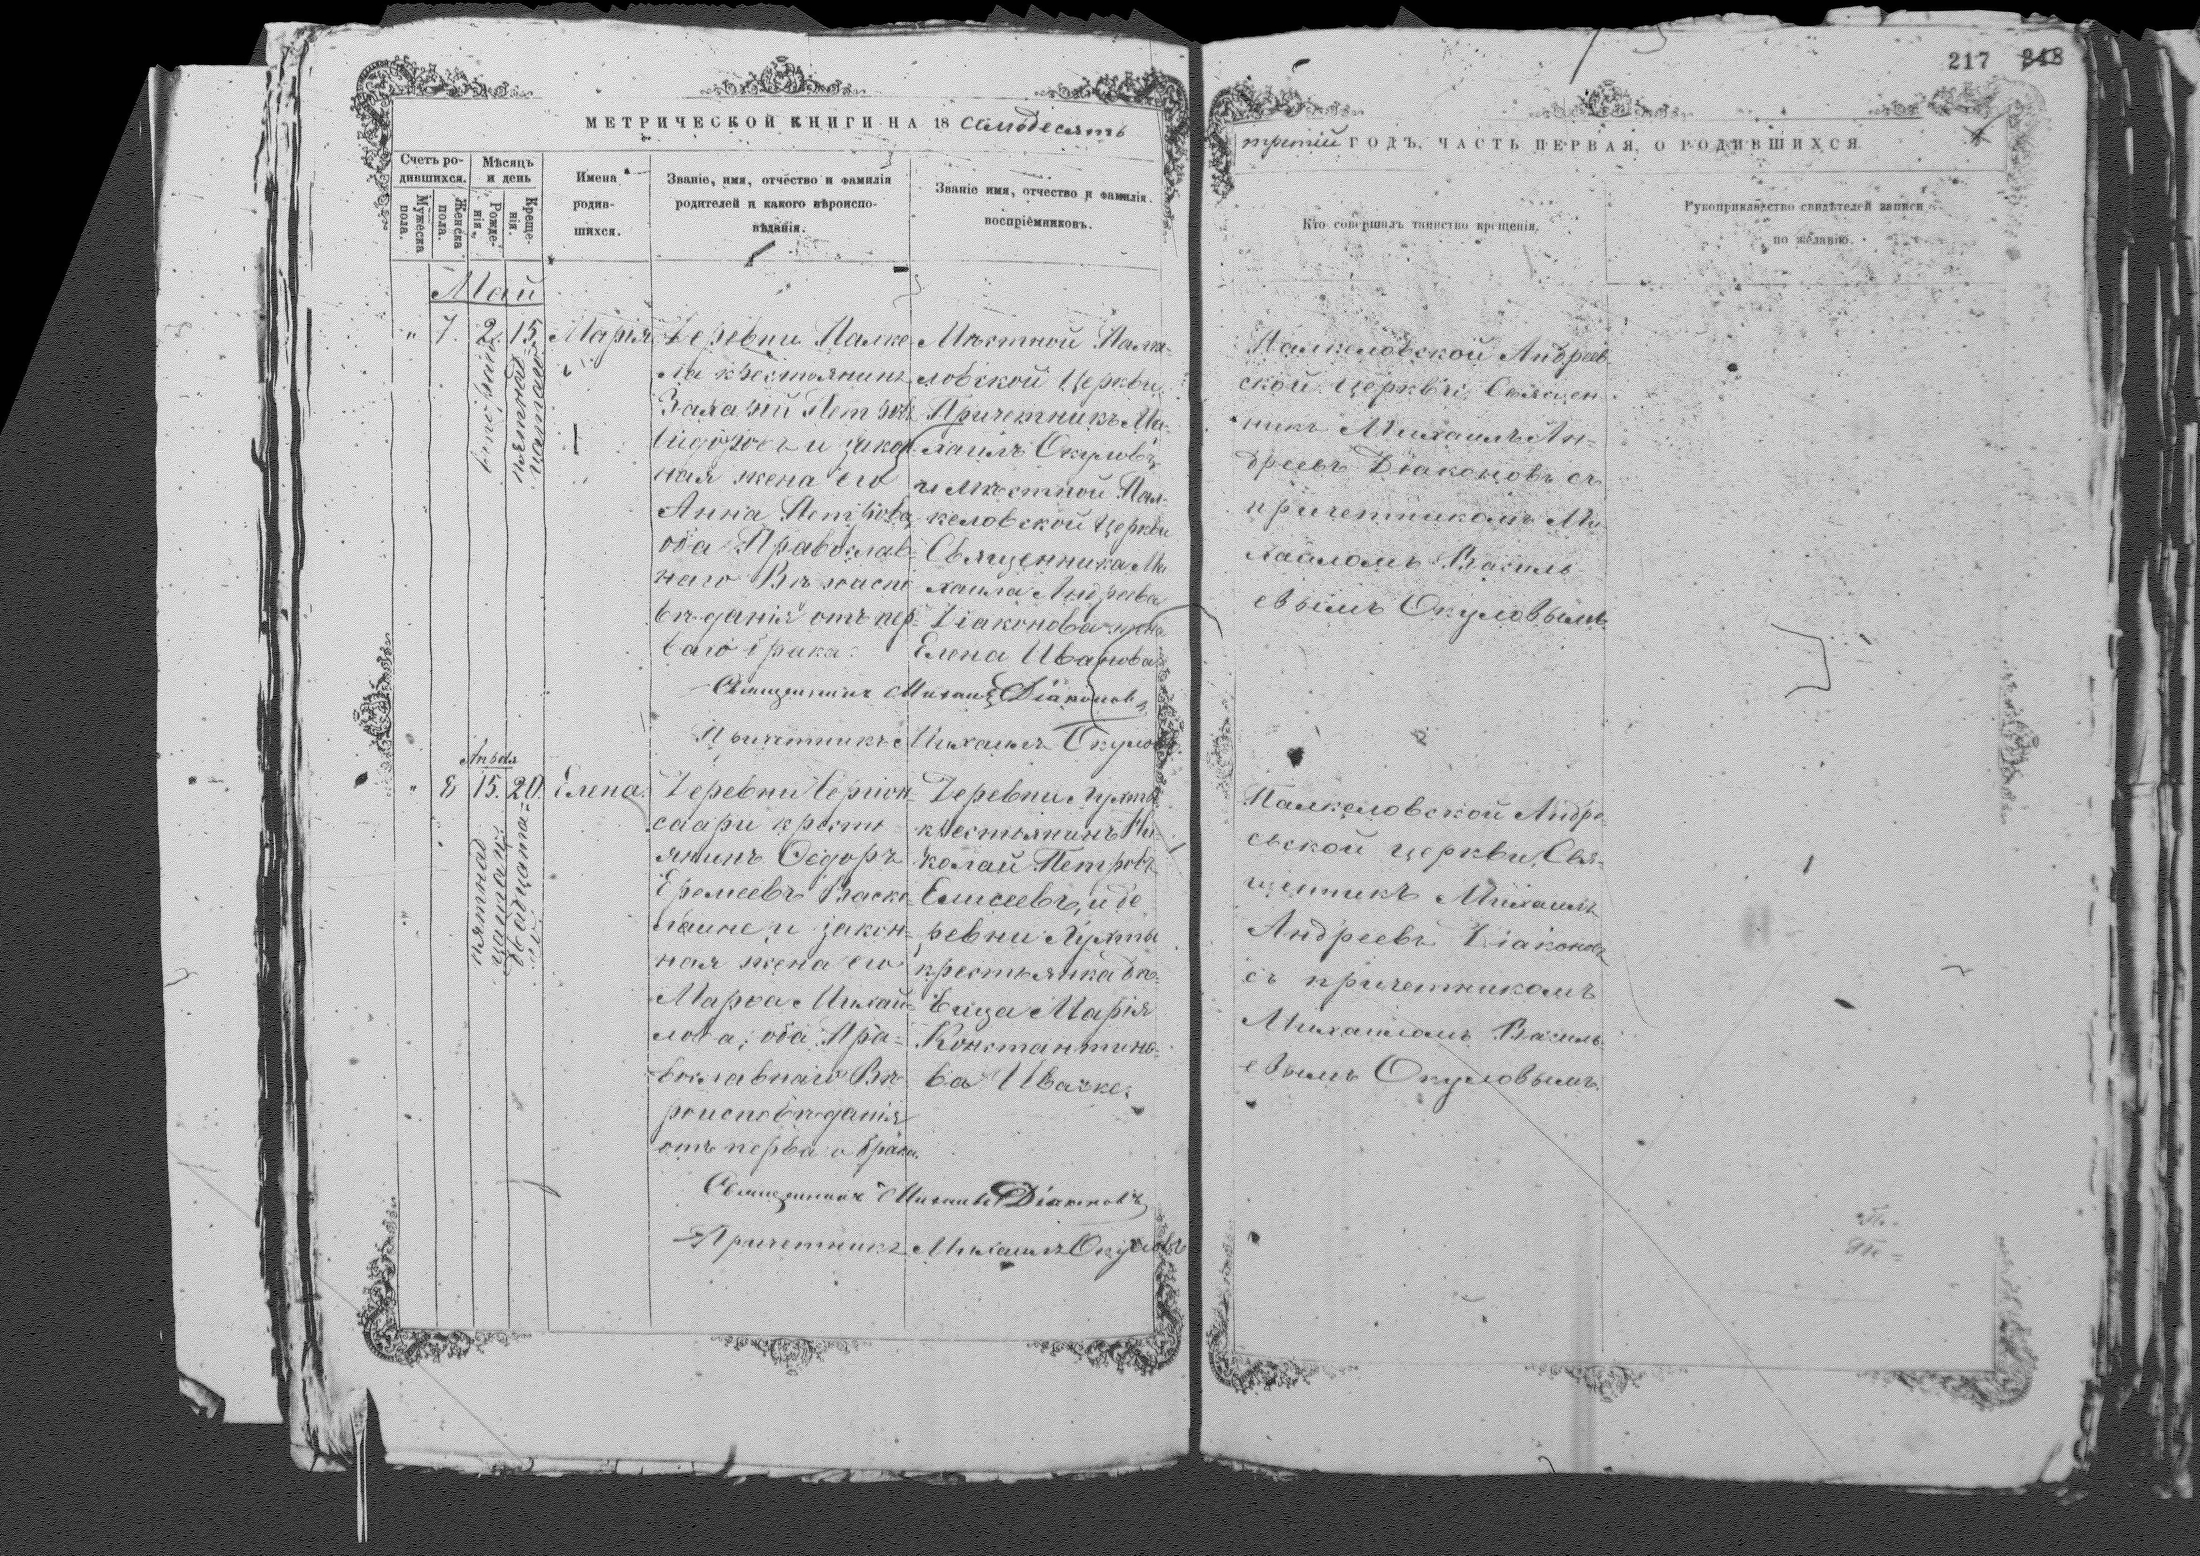 217 218
МЕТРИЧЕСКОЙ КНИГИ НА 18 семьдесятъ
третій ГОДЪ, ЧАСТЬ ПЕРВАЯ, О РОДИВШИХСЯ
Счетъ ро-
дившихся.
Мѣсяцъ
и день
Мужеска
пола.
Женска
пола.
Рожде-
нія.
Креще-
нія.
Имена
родив-
шихся.
Званіе, имя, отчество и фамилія
родителей и какого вѣроиспо-
вѣданія.
Званіе имя, отчество и фамилія
воспріемниковъ.
Кто совершалъ таинство крещенія.
Рукоприкладство свидѣтелей записи
по желанію.
Май
" 7. 2. 15.
пятнад
цатаго
Марія
Деревни Палке
ла крестьянинъ
Захарій Петровъ
и закон
ная жена его
Анна Петрова
оба Православ
наго Вѣроиспо
вѣданія отъ пер-
ваго брака.
Мѣстной Палке-
ловской Церкви
Причетникъ Ми-
хаилъ Окуловъ
и мѣстной Пал-
келовской Церкви
Священника Ми
хаила Андреева
Діаконова жена
Елена Иванова
Палкеловской Андреев
ской церкви, Священ
никъ Михаилъ Ан-
дреевъ Діаконовъ съ
причетникомъ Ми
хаиломъ Василь
евымъ Окуловымъ
Священникъ Михаилъ Діаконовъ
Причетникъ Михаилъ Окуловъ
" 8 15. 20.
пятнад
цатаго
двадцата=
го
Елена.
Деревни
саари кресть
янинъ Ѳедоръ
Еремеевъ Васке
лайне и закон=
ная жена его
Марѳа Михай-
лова; оба Пра=
вославнаго Вѣ
роисповѣданія
отъ перваго брака.
Деревни Лухты
крестьянинъ Ни-
колай Петровъ
Елисеевъ, и де
ревни Лухты
крестьянка дѣ-
вица Марія
Константино-
ва Ивачке.
Палкеловской Андре
евской церкви, Свя-
щенникъ Михаилъ
Андреевъ Діаконовъ
съ причетникомъ
Михаиломъ Василь
евымъ Окуловымъ.
Священникъ Михаилъ Діаконовъ
Причетникъ Михаилъ Окуловъ